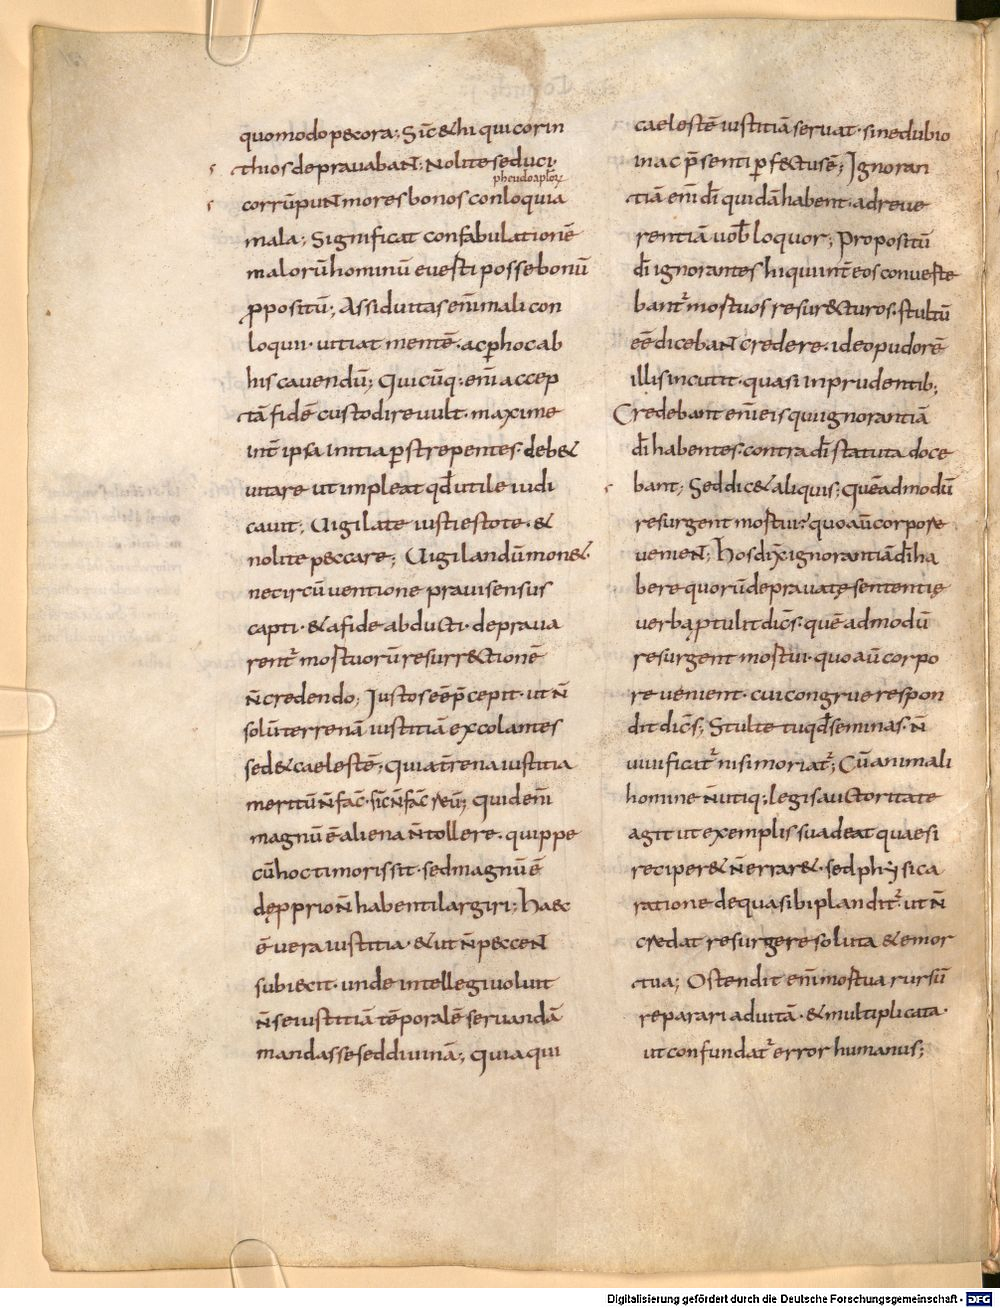 quomodo pecora; Sic̄ & hi qui corin
thios deprauabaN̄; Nolite seduci·
pheudoapl̄ox̄
corrūpuN̄ mores bonos conloquia
mala; Significat confabulationē
malorū hominū euerti posse bonū
ꝓpositū; Assiduitas enī mali con
loquii· uitiat mentē· ac ꝑ hoc ab
his cauendū; Quicūq; enī accep
tā fidē custodire uult· maxime
int̄ ipsa initia ꝑstrepentes· deb&
uitare ut impleat qđ utile iudi
cauit; Uigilate iusti estote· &
nolite peccare; Uigilandū mon&·
ne circūuentione praui sensus
capti· & a fide abducti· depraua
rent̄ mortuorū resurrectionē
n̄ credendo; Iustos eē p̄cepit· ut n̄
solū terrenā iustitiā excolantes
sed & caelestē; Quia t̄rena iustitia
meritū n̄ fac̄· sic̄ n̄ fac̄ reū; Quid enī
magnū ē aliena n̄ tollere· quippe
cū hoc timoris sit· sed magnū ē
dę pprio n̄ habenti largiri; Haec
ē uera iustitia· & ut n̄ peccen̄
subiecit· unde intellegi uoluit
n̄ se iustitiā tēporalē seruandā
mandasse sed diuinā; Quia qui
caelestē iustitiā seruat· sine dubio
in ac p̄senti ꝑfectus ē; Ignoran
tiā enī dī quidā habent· ad reue
rentiā uob̄ loquor; Propositū
dī ignorantes hi qui int̄ eos conuerte
bant̄ mortuos resurrecturos· stultū
eē dicebaN̄ credere· ideo pudorē
illis incutit· quasi inprudentib;
Credebant enī eis qui ignorantiā
dī habentes· contra dī statuta doce
bant; Sed dic& aliquis; Quē admodū
resurgent mortui? quo aū corpore
ueniēN̄; Hos dix̄ ignorantiā dī ha
bere quorū deprauatę sententię
uerba ꝓtulit dic̄s· quē admodū
resurgent mortui· quo aū corpo
re uenient· cui congrue respon
dit dic̄s; Stulte tu qđ seminas· n̄
uiuificat̄ nisi moriat̄; Cū animali
homine n̄ utiq; legis auctoritate
agit ut exemplis suadeat quae si
reciper& n̄ errar&· sed physica
ratione de qua sibi plaudit̄ ut n̄
credat resurgere soluta & emor
tua; Ostendit enī mortua rursū
reparari ad uitā· & multiplicata·
ut confundat̄ error humanus;
Digitalisierung gefördert durch die Deutsche Forschungsgemeinschaft - DFG